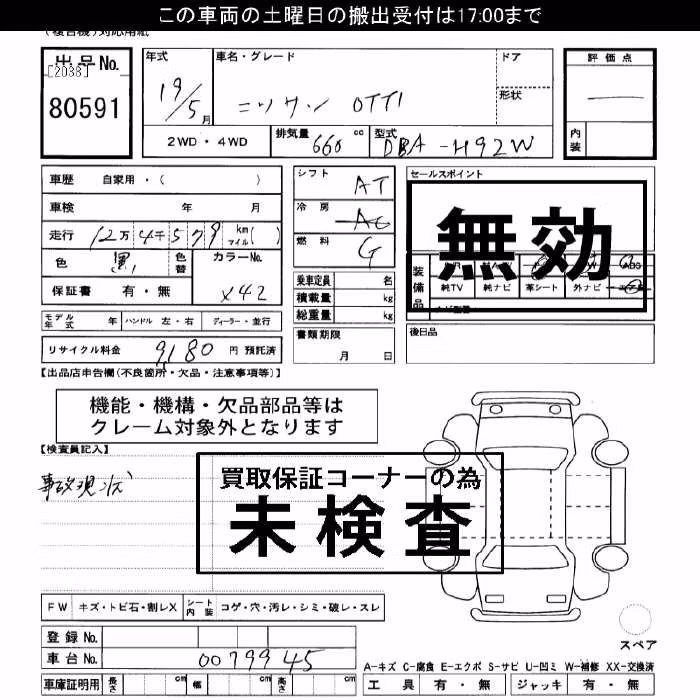 この車両の土曜日の搬出受付は17:00まで
(複合機)対応用紙
出品No.
[2038]
80591
年式
19/5月
車名・グレード
ニッサン OTTI
ドア
形状
評価点
内装
2WD・4WD
排気量 660 cc
型式 DBA-H92W
車歴 自家用・( )
車検 年 月
走行 12万4千579 km マイル( )
色 黒
色替
カラーNo.
X42
保証書 有・無
シフト AT
冷房 AC
燃料 G
乗車定員 名
積載量 kg
総重量 kg
書類期限
月 日
セールスポイント
無効
装備品
純TV 純ナビ 革シート 外ナビ
後日品
モデル年式 年 ハンドル 左・右 ディーラー・並行
リサイクル料金 9180 円 預託済
【出品店申告欄(不良箇所・欠品・注意事項等)】
機能・機構・欠品部品等は
クレーム対象外となります
【検査員記入】
事故現状
買取保証コーナーの為
未検査
FW キズ・トビ石・割レX シート内装 コゲ・穴・汚レ・シミ・破レ・スレ
登録No.
車台No. 0079945
車庫証明用 長さ cm 幅 cm 高さ cm
スペア
A-キズ C-腐食 E-エクボ S-サビ U-凹ミ W-補修 XX-交換済
工具 有・無 ジャッキ 有・無